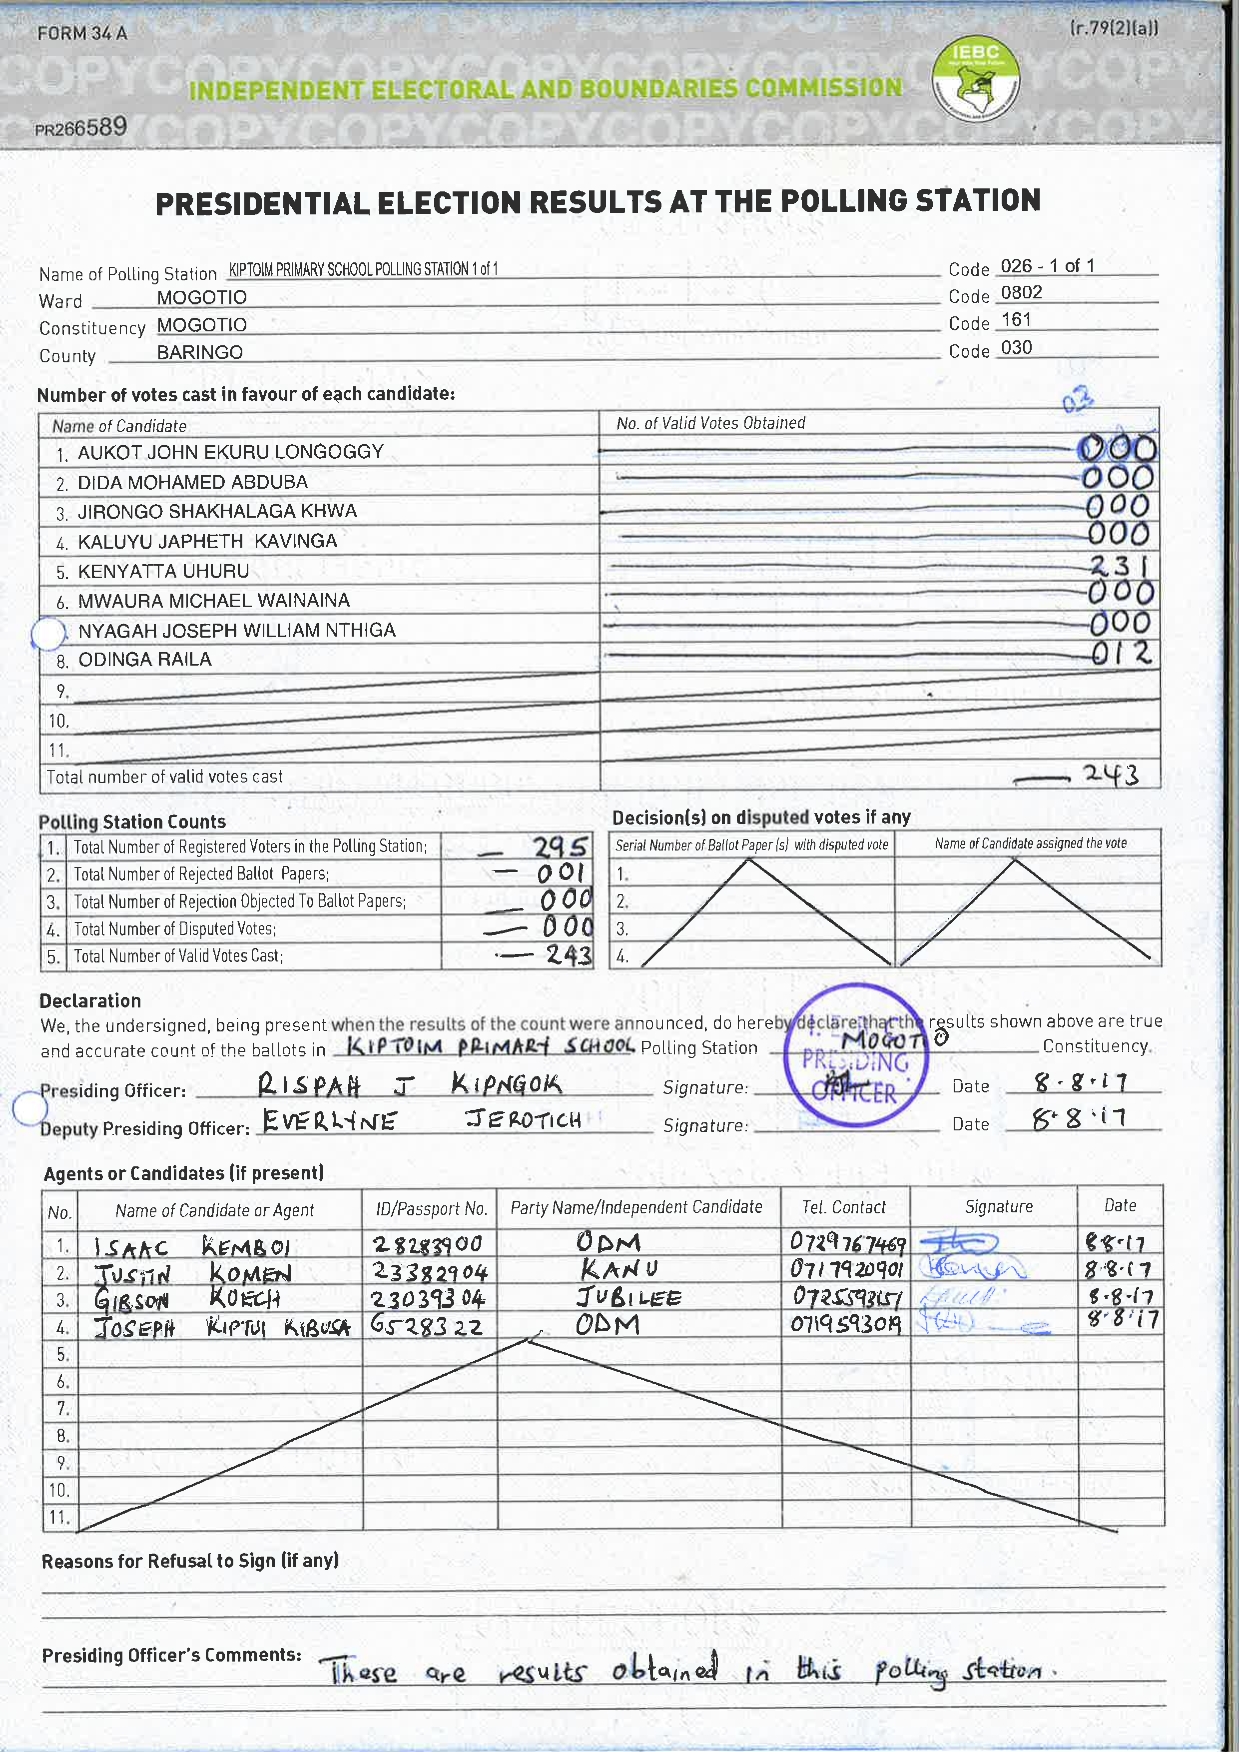 FORM 34 A
(r.79(2)(a))
IEBC
INDEPENDENT ELECTORAL AND BOUNDARIES COMMISSION
PR266589
PRESIDENTIAL ELECTION RESULTS AT THE POLLING STATION
Name of Polling Station KIPTOIM PRIMARY SCHOOL POLLING STATION 1 of 1 Code 026 - 1 of 1
Ward MOGOTIO Code 0802
Constituency MOGOTIO Code 161
County BARINGO Code 030
Number of votes cast in favour of each candidate:
03
Name of Candidate No. of Valid Votes Obtained
1. AUKOT JOHN EKURU LONGOGGY 000
2. DIDA MOHAMED ABDUBA 000
3. JIRONGO SHAKHALAGA KHWA 000
4. KALUYU JAPHETH KAVINGA 000
5. KENYATTA UHURU 231
6. MWAURA MICHAEL WAINAINA 000
NYAGAH JOSEPH WILLIAM NTHIGA 000
8. ODINGA RAILA 012
9.
10.
11.
Total number of valid votes cast 243
Polling Station Counts
1. Total Number of Registered Voters in the Polling Station; 295
2. Total Number of Rejected Ballot Papers; 001
3. Total Number of Rejection Objected To Ballot Papers; 000
4. Total Number of Disputed Votes; 000
5. Total Number of Valid Votes Cast; 243
Decision(s) on disputed votes if any
Serial Number of Ballot Paper (s) with disputed vote Name of Candidate assigned the vote
1.
2.
3.
4.
Declaration
We, the undersigned, being present when the results of the count were announced, do hereby declare that the results shown above are true
and accurate count of the ballots in KIPTOIM PRIMARY SCHOOL Polling Station MOGOTIO Constituency.
PRESIDING OFFICER
Presiding Officer: RISPAH J KIPNGOK Signature: Date 8-8-17
Deputy Presiding Officer: EVERLYNE JEROTICH Signature: Date 8-8-17
Agents or Candidates (if present)
No. Name of Candidate or Agent ID/Passport No. Party Name/Independent Candidate Tel. Contact Signature Date
1. ISAAC KEMBOI 28283900 ODM 0729767469 8-8-17
2. JUSTIN KOMEN 23382904 KANU 0717920901 8-8-17
3. GIBSON KOECH 23039304 JUBILEE 8-8-17
4. JOSEPH KIPTUI KIBUSA 6528322 ODM 8-8-17
5.
6.
7.
8.
9.
10.
11.
Reasons for Refusal to Sign (if any)
Presiding Officer's Comments: These are results obtained in this polling station.